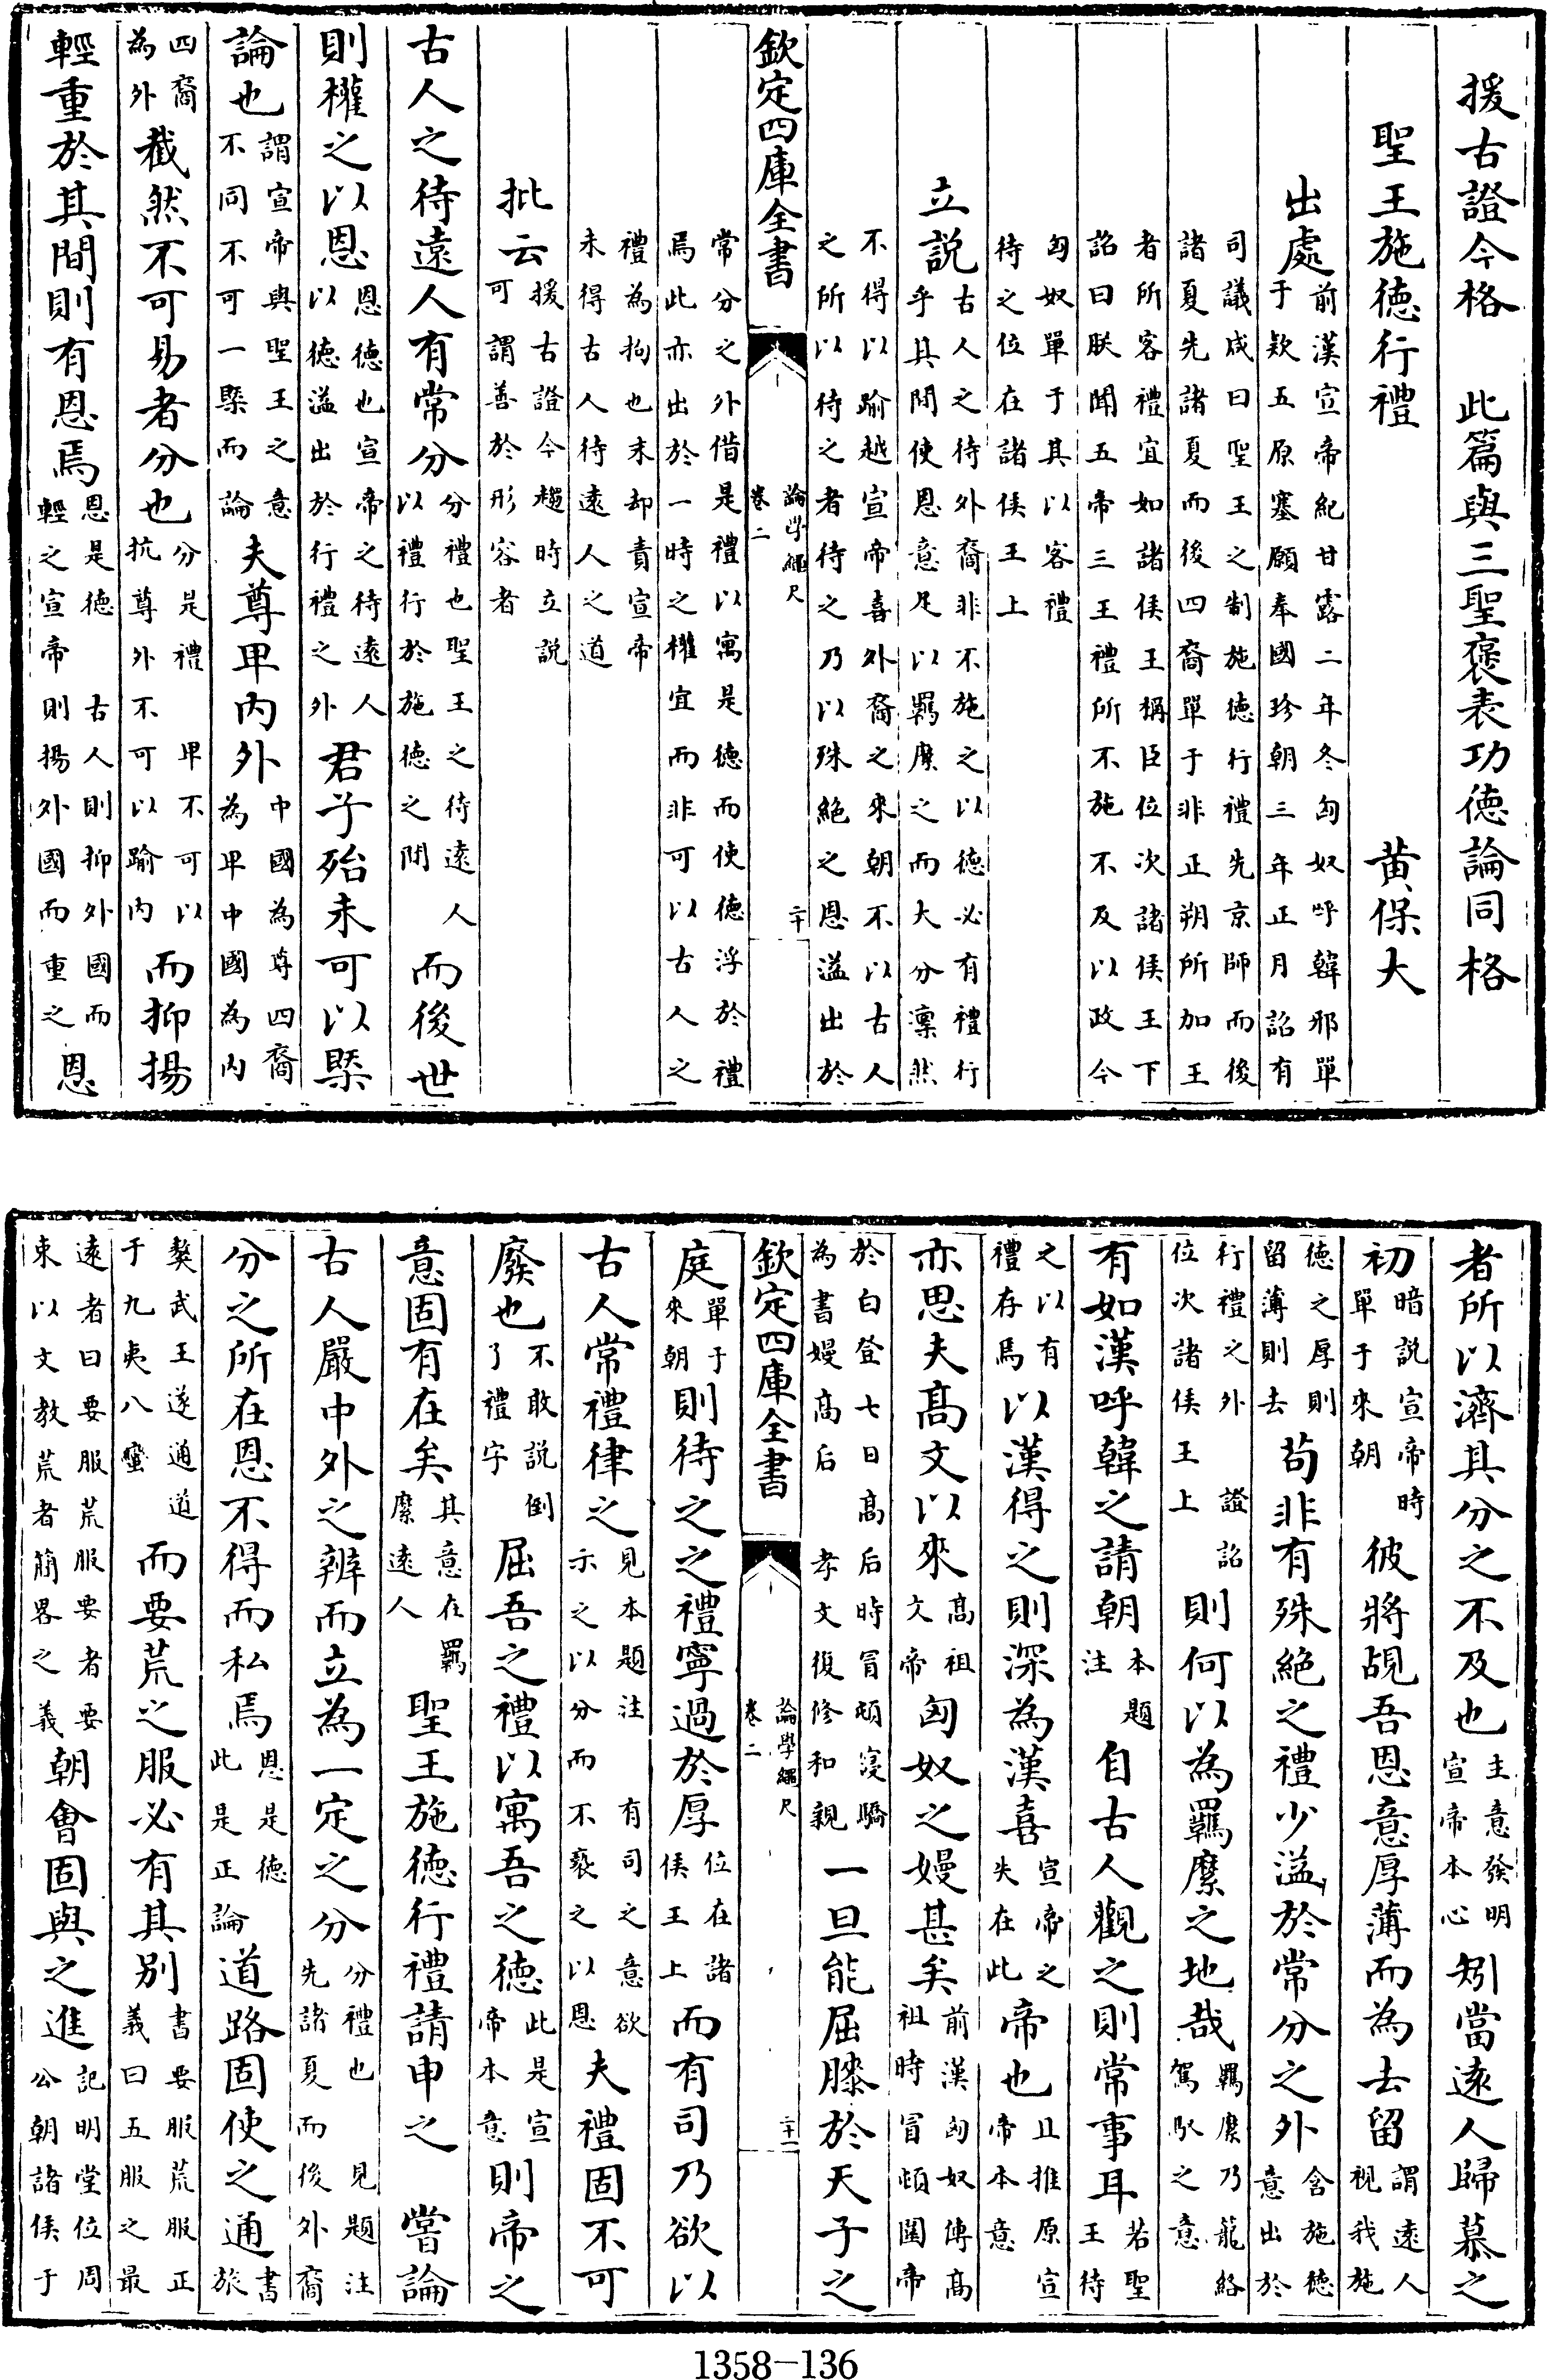 援古證今格　此篇與三聖褒表功徳論同格
聖王施徳行禮　黄保大
出處前漢宣帝紀甘露二年冬匈奴呼韓邪單于欵五原塞願奉國珍朝三年正月詔有
司議咸曰聖王之制施徳行禮先京師而後諸夏先諸夏而後四裔單于非正朔所加王
者所客禮宜如諸侯王稱臣位次諸侯王下詔曰朕聞五帝三王禮所不施不及以政今
匈奴單于其以客禮待之位在諸侯王上
立説古人之待外裔非不施之以徳必有禮行乎其間使恩意足以羈縻之而大分凛然
不得以踰越宣帝喜外裔之來朝不以古人之所以待之者待之乃以殊絶之恩溢出於
欽定四庫全書　論學繩尺　卷二　二十
常分之外借是禮以寓是徳而使徳浮於禮焉此亦出於一時之權宜而非可以古人之
禮為拘也末却責宣帝未得古人待遠人之道
批云援古證今趨時立説可謂善於形容者
古人之待遠人有常分分禮也聖王之待遠人以禮行於施徳之間而後世
則權之以恩恩徳也宣帝之待遠人以徳溢出於行禮之外君子殆未可以槩
論也謂宣帝與聖王之意不同不可一槩而論夫尊卑内外中國為尊四裔為卑中國為内
四裔為外截然不可易者分也分是禮　卑不可以抗尊外不可以踰内而抑揚
輕重於其間則有恩焉恩是徳　古人則抑外國而輕之宣帝則揚外國而重之恩
者所以濟其分之不及也主意發明宣帝本心矧當遠人歸慕之
初暗説宣帝時單于來朝彼將覘吾恩意厚薄而為去留謂遠人視我施
徳之厚則留薄則去苟非有殊絶之禮少溢於常分之外含施徳意出於
行禮之外　證詔位次諸侯王上則何以為羈縻之地哉羈縻乃籠絡駕馭之意
有如漢呼韓之請朝本題注自古人觀之則常事耳若聖王待
之以有禮存焉以漢得之則深為漢喜宣帝之失在此帝也且推原宣帝本意
亦思夫髙文以來髙祖文帝匈奴之嫚甚矣前漢匈奴傳髙祖時冒頓圍帝
於白登七日髙后時冒頓寖驕為書嫚髙后　孝文復修和親一旦能屈膝於天子之
欽定四庫全書　論學繩尺　卷二　二十一
庭單于來朝則待之之禮寧過於厚位在諸侯王上而有司乃欲以
古人常禮律之見本題注　有司之意欲示之以分而不褻之以恩夫禮固不可
廢也不敢説倒了禮字屈吾之禮以寓吾之徳此是宣帝本意則帝之
意固有在矣其意在羈縻遠人聖王施徳行禮請申之　嘗論
古人嚴中外之辨而立為一定之分分禮也　見題注先諸夏而後外裔
分之所在恩不得而私焉恩是徳此是正論道路固使之通書旅
獒武王遂通道于九夷八蠻而要荒之服必有其别書要服荒服正義曰五服之最
遠者曰要服荒服要者要束以文教荒者簡畧之義朝會固與之進記明堂位周公朝諸侯于